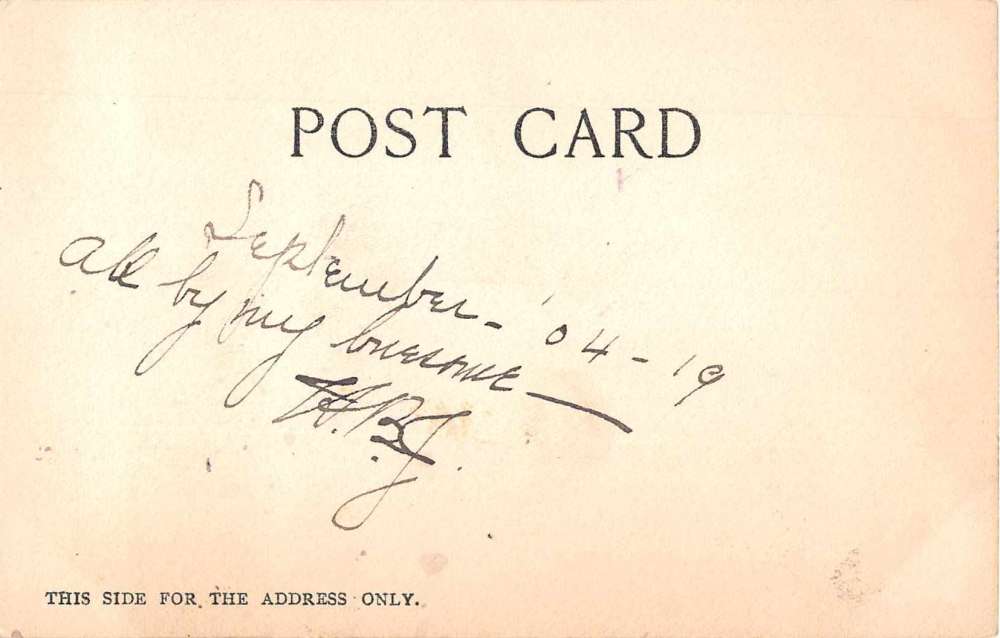 POST CARD
September - '04 - 19
all by my lonesome —
H.B.J.
THIS SIDE FOR THE ADDRESS ONLY.